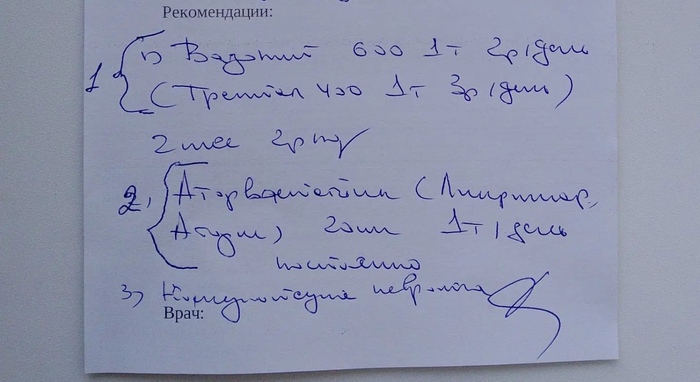 Рекомендации:
1 1) Вазонит 600 1т 2р/день
(Трентал 400 1т 3р/день)
2 мес 2р год
2, Аторвастатин (Липримар,
Атурис) 20мг 1т/день
постоянно
3) Консультация невролога
Врач: